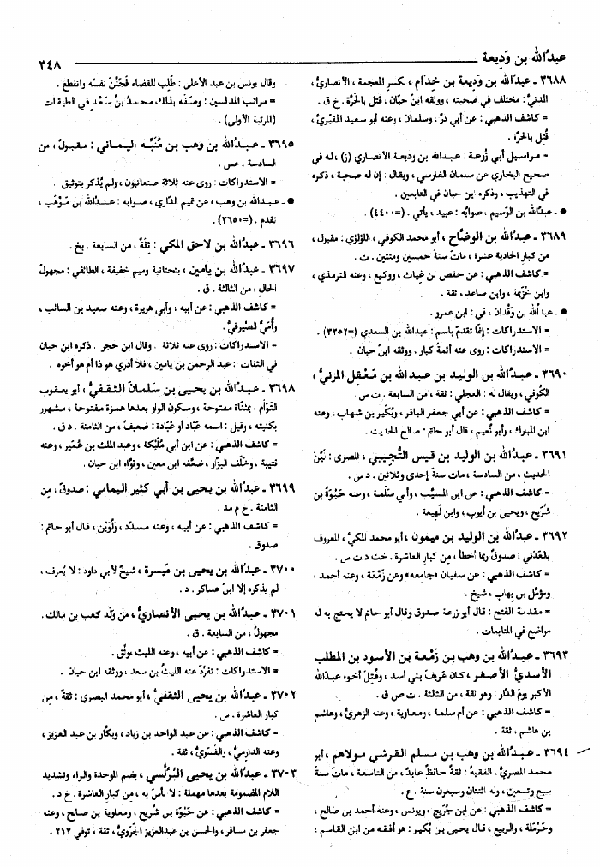 عبدُالله بن وَدِيعة
٣٤٨
٣٦٨٨ ـ عبدالله بن وَدِيعة بن خِدَام، بكسر المعجمة، الأنصاريُّ،
المدنيُّ: مختلف في صحبته، ووثقه ابن حِبَّان، قُتل بالحَرَّة. خ ق.
= كاشف الذهبي: عن أبي ذرّ، وسلمان، وعنه أبو سعيد المَقْبُري،
قُتل بالحرَّة.
= مراسيل أبي زُرعة: عبدالله بن وديعة الأنصاري (ز)، له في
صحيح البخاري عن سلمان الفارسي، ويقال: إن له صحبة، ذكره
في التهذيب، وذكره ابن حبان في التابعين.
● ـ عبدالله بن الوَسِيم، صوابُه: عبيد، يأتي. (=٤٤٠٠)
٣٦٨٩ ـ عبدالله بن الوضَّاح، أبو محمد الكوفي، اللؤلؤي: مقبول،
من كبار الحادية عشرة، مات سنة خمسين ومئتين. ت.
= كاشف الذهبي: عن حفص بن غياث، ووكيع، وعنه الترمذي،
وابن خُزَيْمة، وابن صاعد، ثقة.
● ـ عبدالله بن وَقْدان، في: ابن عمرو.
= الاستدراكات: إنَّما تقدّم باسم: عبدالله بن السعدي (=٣٣٥٢).
٣٦٩٠ ـ عبدُالله بن الوليد بن عبدالله بن مَعْقِل المُزَنيُّ،
الكُوفي، ويقال له: العجلي: ثقة، من السابعة. ت س.
= كاشف الذهبي: عن أبي جعفر الباقر، وبُكَيْر بن شهاب، وعنه
ابن المبارك، وأبو نُعيم، قال أبو حاتم: صالح الحديث.
٣٦٩١ ـ عبدالله بن الوليد بن قيس التُّجِيبيُّ، المصري: ليِّنُ
الحديث، من السادسة، مات سنة إحدى وثلاثين. د س.
= كاشف الذهبي: عن ابن المسيَّب، وأبي سلمة، وعنه حَيْوَة بن
شُرَيْح، ويحيى بن أيوب، وابن لَهِيعة.
٣٦٩٢ ـ عبدُالله بن الوليد بن ميمون، أبو محمد المكيُّ، المعروف
بالعَدَنيّ: صدوقٌ ربما أخطأ، من كبار العاشرة. خت د ت س.
= كاشف الذهبي: عن سفيان «جامعه» وعن زَمْعة، وعنه أحمد،
ومؤمَّل بن إهاب، شيخ.
= مقدمة الفتح: قال أبو زرعة صدوق وقال أبو حاتم لا يحتج به له
مواضع في المتابعات.
٣٦٩٣ ـ عبدُالله بن وهب بن زَمْعة بن الأسود بن المطلب
الأسديُّ الأصغر، كان عَرِيفَ بني أسد، وقُتِل أخوه عبدالله
الأكبر يوم الدَّار، وهو ثقة، من الثالثة. ت ص ق.
= كاشف الذهبي: عن أم سلمة، ومعاوية، وعنه الزهريُّ، وهاشم
بن هاشم، ثقة.
٣٦٩٤ ـ عبدُالله بن وَهْب بن مسلم القرشي مولاهم، أبو
محمد المصريُّ، الفقيه: ثقةٌ حافظٌ عابد، من التاسعة، مات سنة
سبع وتسعين، وله اثنتان وسبعون سنة. ع.
= كاشف الذهبي: عن ابن جُرَيْج، ويونس، وعنه أحمد بن صالح،
وحَرْمَلة، والربيع، قال يحيى بن بُكير: هو أفقه من ابن القاسم:
وقال يونس بن عبد الأعلى: طُلِب للقضاء فجَنَّنَ نفسَه وانقطع.
= مراتب المدلسين: وصَفَه بذلك محمدُ بنُ سَعْدٍ في الطبقات
(المرتبة الأولى).
٣٦٩٥ ـ عبدُالله بن وهب بن مُنَبِّه اليماني: مقبول، من
السادسة. ص.
= الاستدراكات: روى عنه ثلاثة صنعانيون، ولم يُذكر بتوثيق.
● ـ عبدالله بن وهب، عن تميم الدَّاري، صوابه: عبدالله بن مَوْهَب،
تقدم. (=٣٦٥٠)
٣٦٩٦ ـ عبدُالله بن لاحق المكي: ثِقَةٌ، من السابعة. بخ.
٣٦٩٧ ـ عبدُالله بن يامِين، بتحتانية وميم خفيفة، الطائفي: مجهولُ
الحال، من الثالثة. ق.
= كاشف الذهبي: عن أبيه، وأبي هريرة، وعنه سعيد بن السائب،
وأُمَيُّ الصَّيرفيُّ.
= الاستدراكات: روى عنه ثلاثة. وقال ابن حجر: ذكره ابن حبان
في الثقات: عبد الرحمن بن يامين، فلا أدري هو ذا أم هو أخوه.
٣٦٩٨ ـ عبدُالله بن يحيى بن سلمان الثقفيُّ، أبو يعقوب
التَّوْأَم، بمثنَّاة مفتوحة، وسكون الواو بعدها همزة مفتوحة، مشهور
بكنيته، وقيل: اسمه عبّاد أو عُبَادة: ضعيفٌ، من الثامنة. د ق.
= كاشف الذهبي: عن ابن أبي مُلَيْكة، وعبد الملك بن عُمَير، وعنه
قتيبة، وخَلَف البزّار، ضعَّفه ابن معين، ووثّقه ابن حبان.
٣٦٩٩ ـ عبدُالله بن يحيى بن أبي كثير اليمامي: صدوقٌ، من
الثامنة. خ م مد.
= كاشف الذهبي: عن أبيه، وعنه مسدّد، ولُوَيْن، قال أبو حاتم:
صدوق.
٣٧٠٠ ـ عبدُالله بن يحيى بن ميسرة، شيخٌ لأبي داود: لا يُعرف،
لم يذكره إلا ابن عساكر. د.
٣٧٠١ ـ عبدُالله بن يحيى الأنصاريُّ، من ولد كعب بن مالك:
مجهول، من السابعة. ق.
= كاشف الذهبي: عن أبيه، وعنه الليث، وُثِّق.
= الاستدراكات: تفرَّدَ عنه الليثُ بن سعد، ووثقه ابن حبان.
٣٧٠٢ ـ عبدُالله بن يحيى الثقفيُّ، أبو محمد البصري: ثقةٌ، من
كبار العاشرة. س.
= كاشف الذهبي: عن عبد الواحد بن زياد، وبكَّار بن عبد العزيز،
وعنه الدارميُّ، والفَسَويُّ، ثقة.
٣٧٠٣ ـ عبدُالله بن يحيى البُرُلُّسي، بضم الموحدة والراء وتشديد
اللام المضمومة بعدها مهملة: لا بأس به، من كبار العاشرة. خ د.
= كاشف الذهبي: عن حَيْوَة بن شُرَيح، ومعاوية بن صالح، وعنه
جعفر بن مسافر، والحسن بن عبدالعزيز الجَرَويُّ، ثقة، توفي ٢١٢.